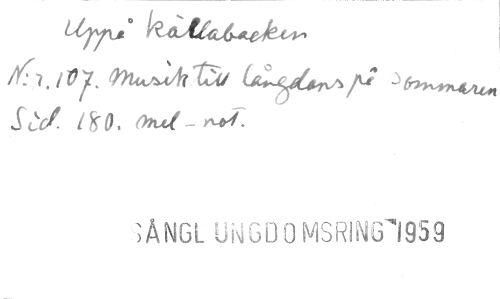 Uppå källabacken
N:r. 107. Musik till långdans på sommaren
Sid. 180. mel-not.
SÅNGL UNGDOMSRING 1959